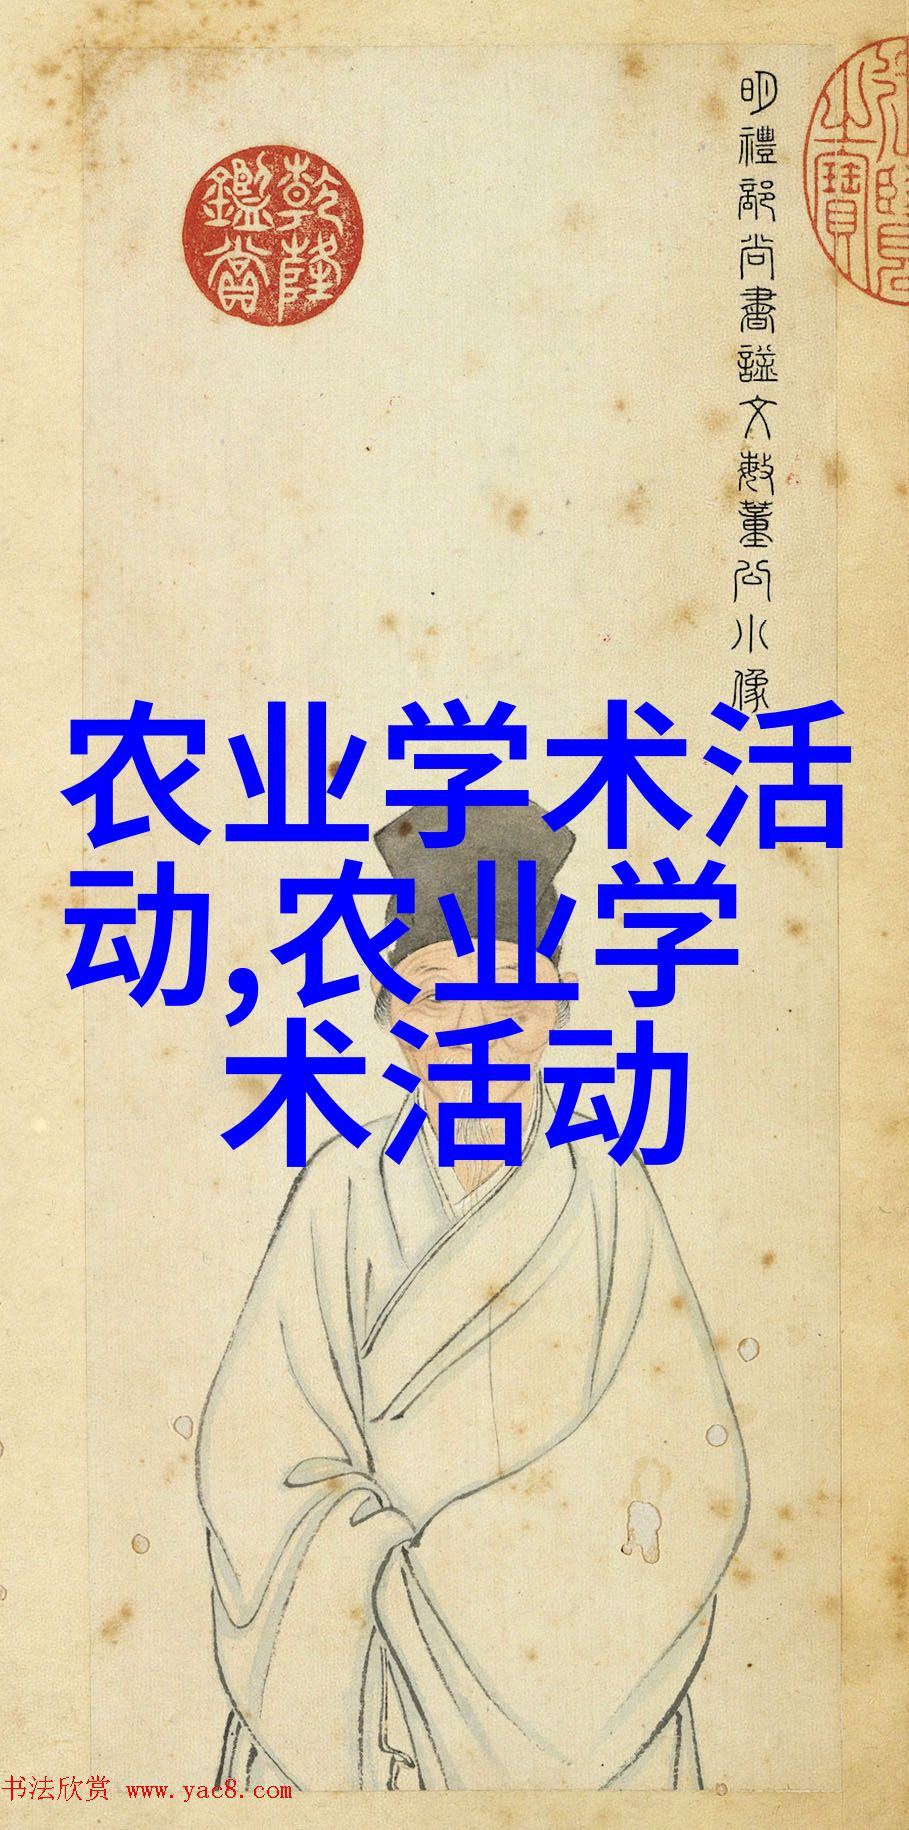 明禮部尚書謚文敏董公小像
乾隆
鑑賞
农业学术活
动,农业学
术活动
书法欣赏 www.yac8.com